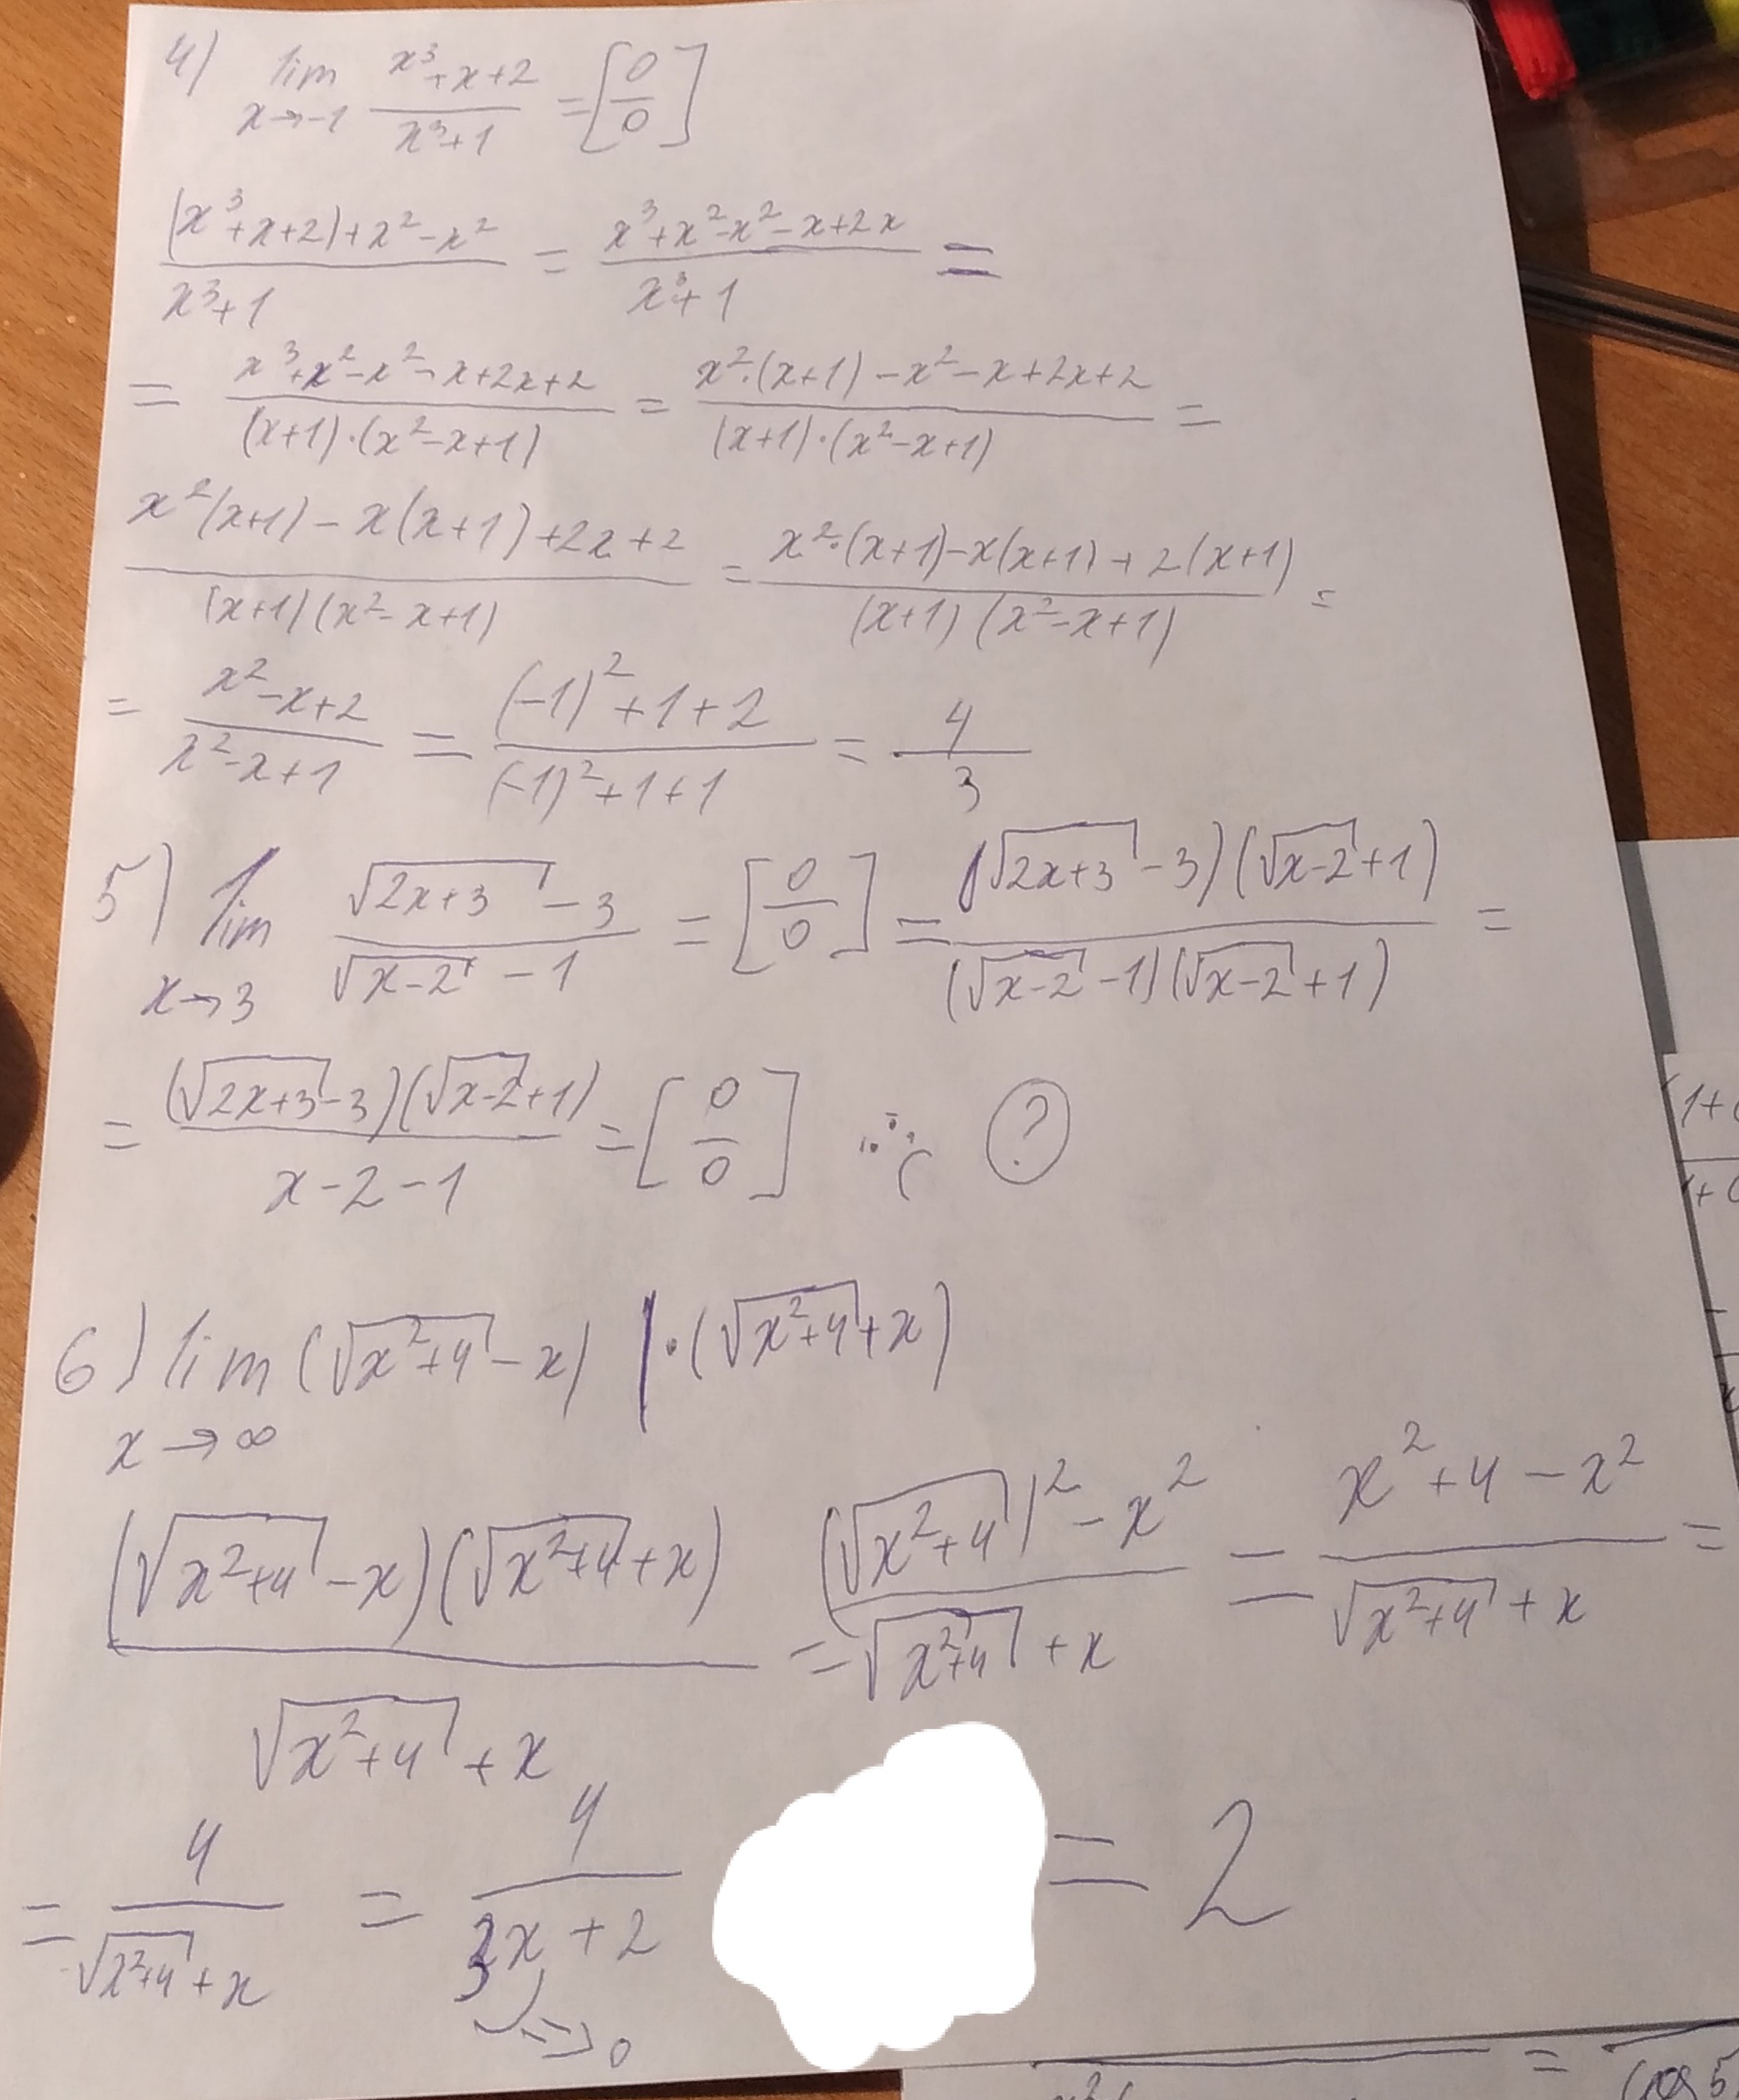 4) lim x→-1 (x³+x+2)/(x³+1) = [0/0]
((x³+x+2)+x²-x²)/(x³+1) = (x³+x²-x²-x+2x)/(x³+1) =
= (x³+x²-x²-x+2x+2)/((x+1)·(x²-x+1)) = (x²·(x+1)-x²-x+2x+2)/((x+1)·(x²-x+1)) =
(x²(x+1)-x(x+1)+2x+2)/((x+1)(x²-x+1)) = (x²·(x+1)-x(x+1)+2(x+1))/((x+1)(x²-x+1)) =
= (x²-x+2)/(x²-x+1) = ((-1)²+1+1+2)/((-1)²+1+1) = 4/3
5) lim x→3 (√(2x+3) - 3)/(√(x-2) - 1) = [0/0] = ((√(2x+3) - 3)(√(x-2)+1))/((√(x-2) -1)(√(x-2) +1)) =
= ((√(2x+3) -3)(√(x-2)+1))/(x-2-1) = [0/0] ?
6) lim x→∞ (√(x²+4) - x) | ·(√(x²+4) + x)
((√(x²+4) - x)(√(x²+4) + x))/(√(x²+4) + x) = ((√(x²+4))² - x²)/(√(x²+4) + x) = (x²+4-x²)/(√(x²+4) + x) =
= 4/(√(x²+4) + x) = 4/(3x+2) = 2
→0
1+
1+
=